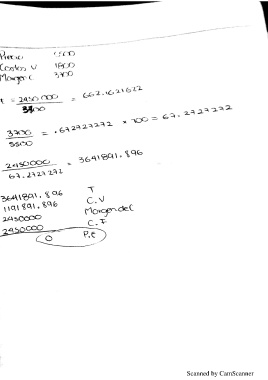 Precio 5500
Costos V 1800
Margen C 3700
t = 2450 000 = 662.1621622
3700
3700 = .672727272 × 100 = 67.2727272
5500
2450000 = 3641891.896
67.2727272
3641891.896 T
1191891.896 C.V
2450000 Margen de C
2450000 C.F
0 P.E
Scanned by CamScanner